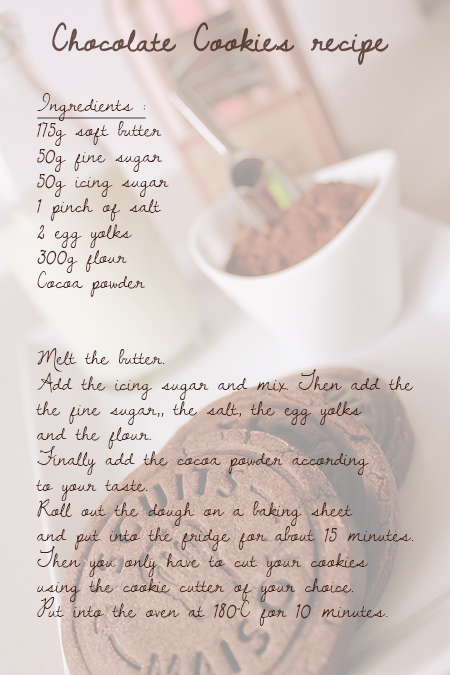 Chocolate Cookies recipe
Ingredients :
175g soft butter
50g fine sugar
50g icing sugar
1 pinch of salt
2 egg yolks
300g flour
Cocoa powder
Melt the butter.
Add the icing sugar and mix. Then add the
the fine sugar,, the salt, the egg yolks
and the flour.
Finally add the cocoa powder according
to your taste.
Roll out the dough on a baking sheet
and put into the fridge for about 15 minutes.
Then you only have to cut your cookies
using the cookie cutter of your choice.
Put into the oven at 180°C for 10 minutes.
MAIS